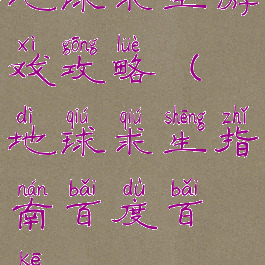 地球求生游
xì gōng lüè
戏攻略（
dì qiú qiú shēng zhǐ
地球求生指
nán bǎi dù bǎi
南百度百
kē